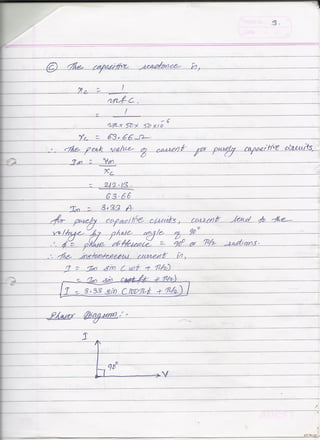 3.
Ⓒ The capacitive reactance is,
Xc = 1
2πfC.
= 1
2π × 50 × 50×10⁻⁶
Xc = 63.66 Ω
∴ The peak value of current for purely capacitive circuits
Im = Vm
Xc
= 212.13
63.66
Im = 3.33 A
for purely capacitive circuits, current lead to the
voltage by phase angle of 90°
∴ ϕ = phase difference = 90° or π/2 radians.
∴ the instantaneous current is,
I = Im sin (ωt + π/2)
= Im sin + π/2)
I = 3.33 sin (100πt + π/2)
Phasor Diagram:-
I
90°
V